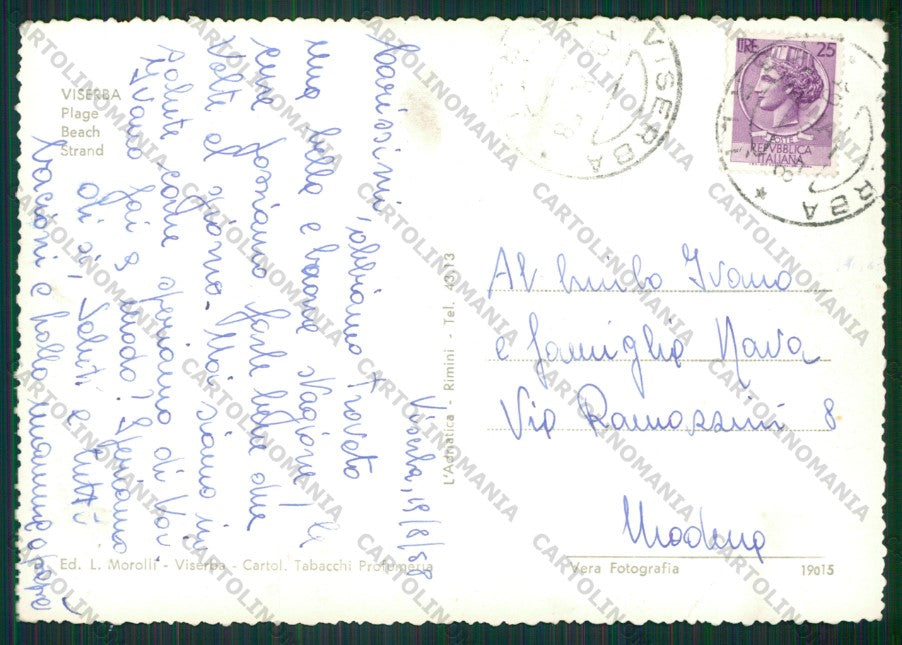 VISERBA
Plage
Beach
Strand
Viserba, 19/8/58
Carissimi, abbiamo trovato
una bella e buona stagione! le
cure possiamo farle bene due
volte al giorno. Noi siamo in
salute come speriamo di Voi
Ivano fai a modo? Speriamo
di sì. Saluti a tutti
bacioni e
L'Adriatica - Rimini - Tel. 43-13
Ed. L. Morolli - Viserba - Cartol. Tabacchi Profumeria
VISERBA
LIRE 25
REPVBBLICA
ITALIANA
Al bimbo Ivano
e famiglia Nava
Via Ramazzini 8
Modena
Vera Fotografia
19015
CARTOLINOMANIA